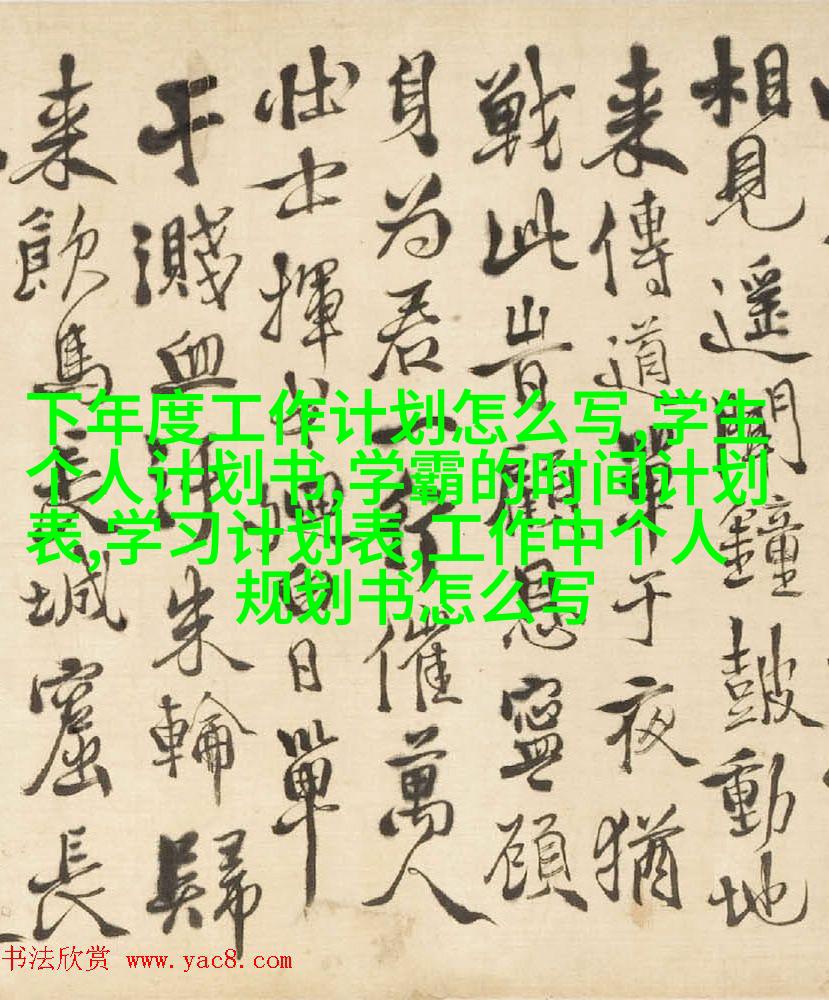 相見遥聞鐘鼓動地
来傳道單于夜猶
戰此旹顧恩寧顧
身为君一行催萬人
壮士揮戈白日單
于濺血朱輪歸
来飲馬長城窟長
下年度工作计划怎么写,学生
个人计划书,学霸的时间计划
表,学习计划表,工作中个人
规划书怎么写
书法欣赏 www.yac8.com